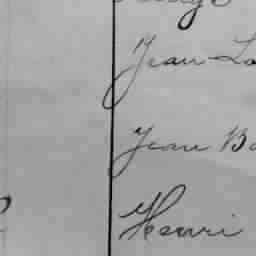 Jean-Lo
Jean Ba
Henri